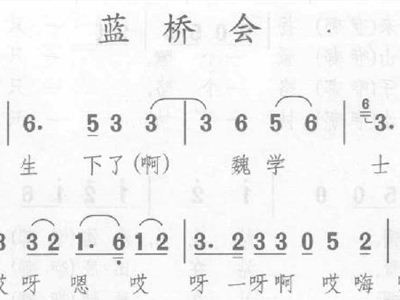 蓝桥会
6. 5 3 3 | 3 6 5 6 | 6 3.
生 下了(啊) 魏学 士
3 2 1. 6 1 2 | 3. 2 3 3 0 5 2
哎呀 嗯 哎 呀 一呀啊 哎嗨